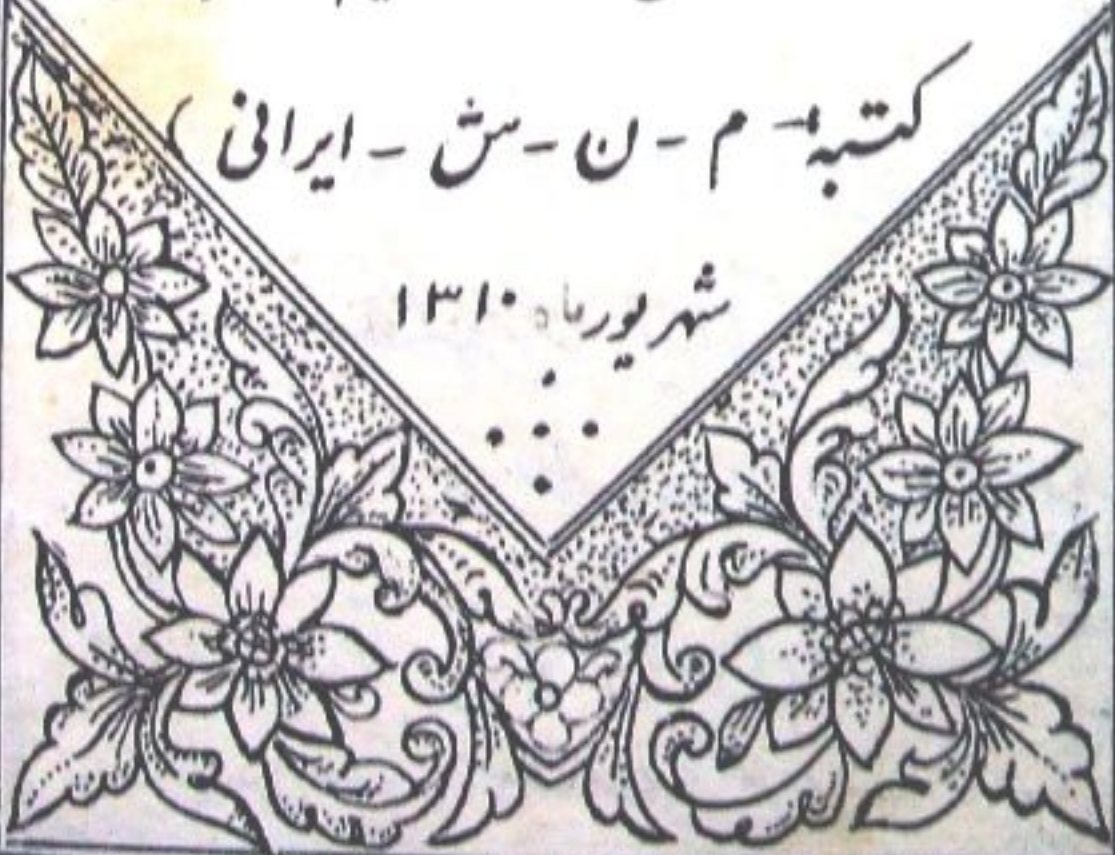 کتبه م - ن - ش - ایرانی
شهریورماه ۱۳۱۰